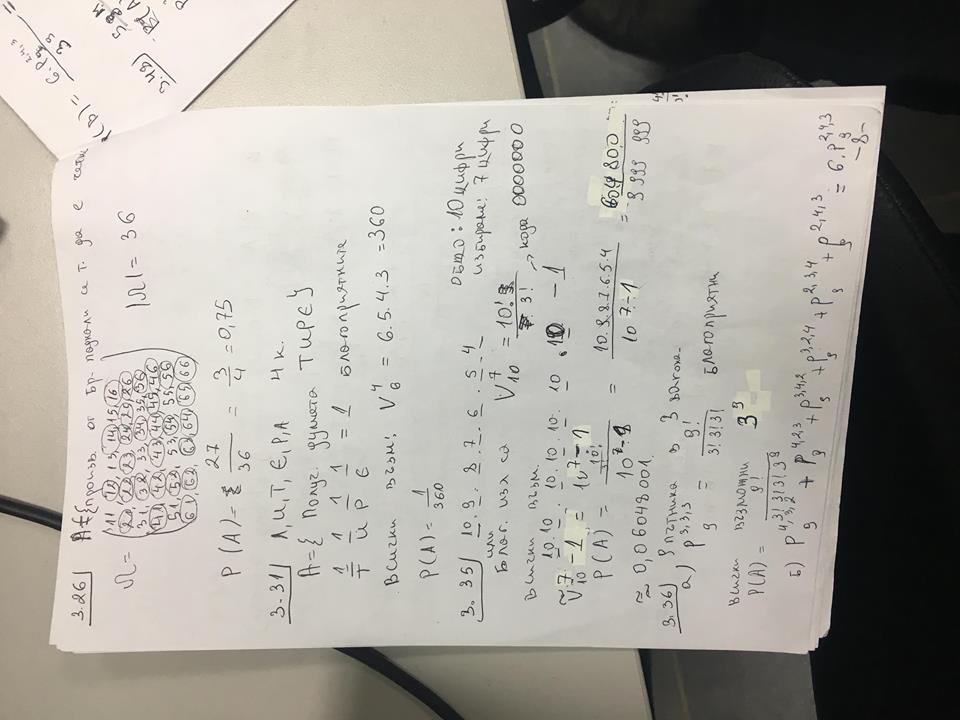 3.26) A={произв. от бр. паднали се т. да е четн
Ω = {11, 12, 13, 14, 15, 16
21, 22, 23, 24, 25, 26
31, 32, 33, 34, 35, 36
41, 42, 43, 44, 45, 46
51, 52, 53, 54, 55, 56
61, 62, 63, 64, 65, 66} |Ω| = 36
P(A) = 27/36 = 3/4 = 0,75
3.31) Л, И, Т, Е, Р, А 4 к.
A={ Получ. думата ТИРЕ}
1 1 1 1 = 1 благоприятните
Т И Р Е
Всички възм: V₆⁴ = 6.5.4.3 = 360
P(A) = 1/360
3.35) 10.9.8.7.6.5.4 общо: 10 цифри
избираме: 7 цифри
или
Благ. изх са V₁₀⁷ = 10!/3! → кода 0000000
Всички възм.
10.10.10.10.10.10.10 – 1
Ṽ₁₀⁷ – 1 = 10⁷ – 1
P(A) = = 10.9.8.7.6.5.4/10⁷–1 = 604800/9 999 999
≈ 0,06048001.
3.36) 9 пътника в 3 вагона.
а) P₉³,³,³ = 9!/3!3!3! благоприятни
Всички възможни 3⁹
P(A) = 9!/3!3!3!3⁹
Б) P₉⁴,³,² + P₉⁴,²,³ + P₉³,⁴,² + P₉³,²,⁴ + P₉²,³,⁴ + P₉²,⁴,³ = 6.P₉²,⁴,³
-8-
P(B) = 6.P₉²,⁴,³/3⁹ =
3.48)